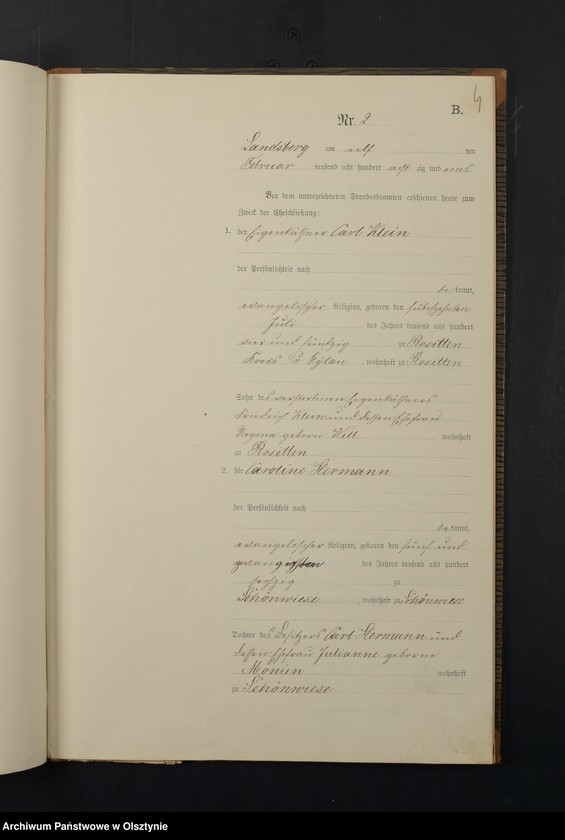 B. 4
Nr. 2
Landsberg am elf ten
Februar tausend acht hundert acht zig und eins
Vor dem unterzeichneten Standesbeamten erschienen heute zum
Zweck der Eheschließung:
1. der Eigenkäthner Carl Klein
der Persönlichkeit nach
be kannt,
evangelischer Religion, geboren den
Juli des Jahres tausend acht hundert
vier und fünfzig zu Rositten
Kreis Pr. Eylau, wohnhaft zu Rositten
Sohn des verstorbenen Eigenkäthners
Friedrich Klein und dessen Ehefrau
Regina geborn Will wohnhaft
zu Rositten
2. die Caroline Hermann
der Persönlichkeit nach
be kannt,
evangelischer Religion, geboren den fünf und
zwanzigsten des Jahres tausend acht hundert
sechzig zu
Schönwiese, wohnhaft zu Schönwiese
Tochter des Besitzers Carl Hermann und
dessen Ehefrau Julianne geborne
Monien wohnhaft
zu Schönwiese
Archiwum Państwowe w Olsztynie